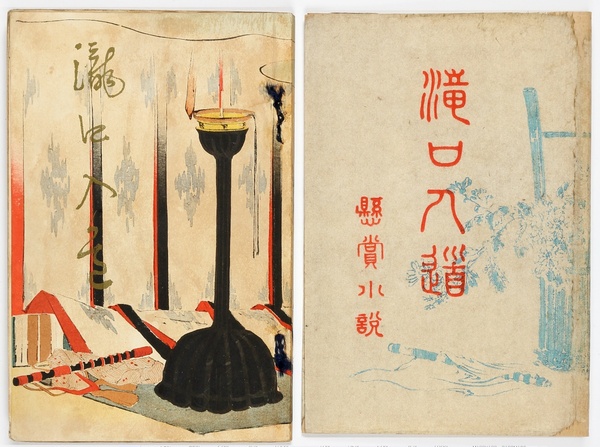 瀧口入道
滝口入道
懸賞小說